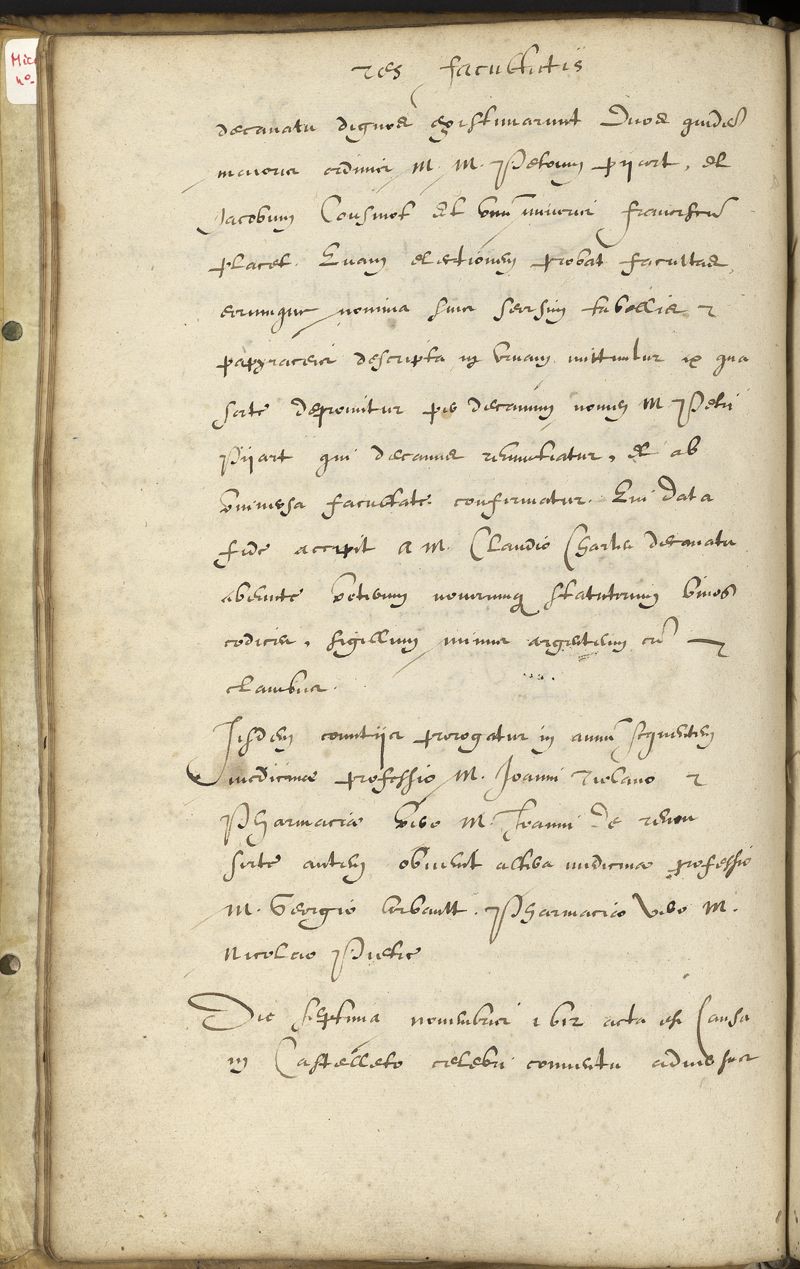 Mic
no.
res facultatis
decanatu dignos existimarunt Duos quidē
maioris ordinis M. M. Petrum Pijart, et
Jacobum Cousinot Et vnū minoris franciscū
placet. Quam electionem probat facultas,
eorumque nomina suis seorsim tabellis &
papyraceis descripta in vrnam mittuntur ex qua
sorte depromitur pro decanum nomen M Petri
Pijart qui decanus renuntiatur, et ab
vniuersa facultate confirmatur. Qui data
fide accepit a M. Claudio Charles decanatu
abeunte veterum nouorumq statutorum binos
codices, sigillum minus argenteum cū
clauibus.
Iisdem comitijs prorogatur in annū sequentem
medicinæ professio M. Joanni riolano &
Pharmaciæ vero M. Joanni de renou
sorte autem obuenit altera medicinæ professio
M. Georgio Corbault. Pharmaciæ vero M.
Nicolao Pietre
Die septima nouembris 1612 acta est Causa
in Castelleto celebri conuentu aduersus